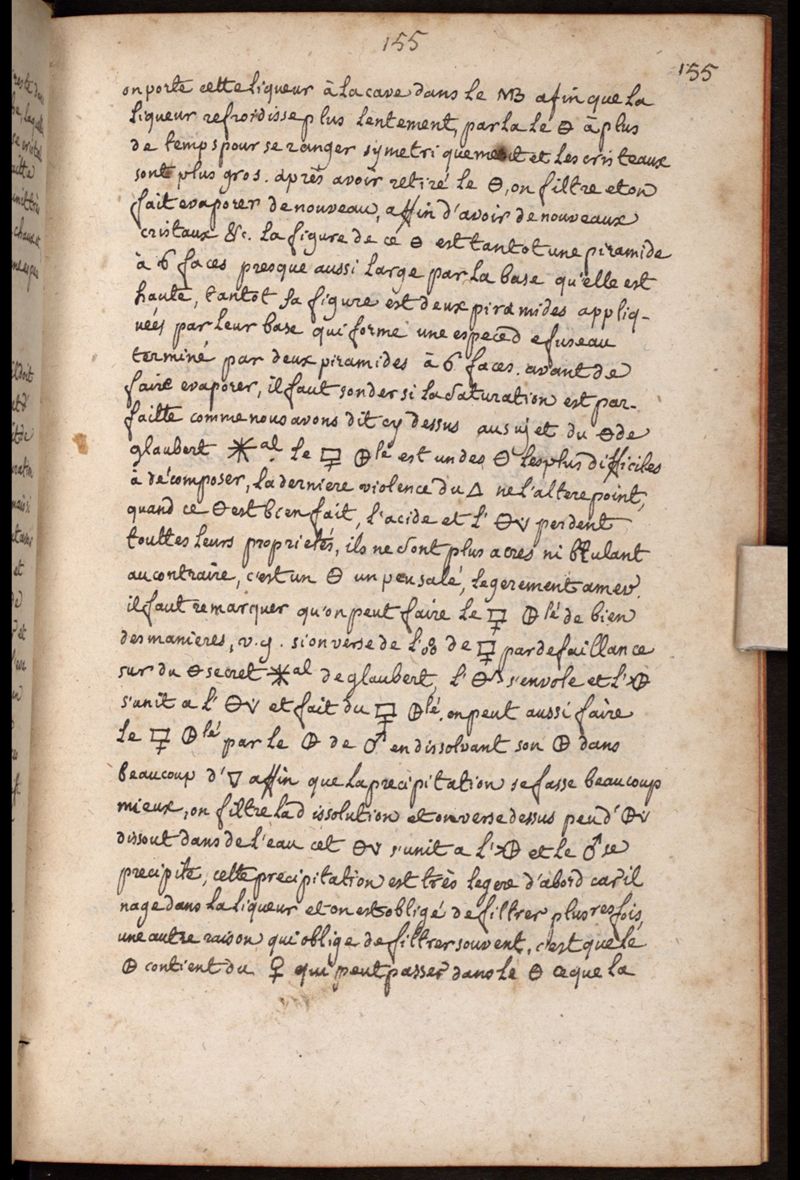 155
155
on porte cette liqueur à la cave dans le MB afin que la
liqueur refroidisse plus lentement, par la le 🜔 à plus
de temps pour se ranger symetriquement et les cristeaux
sont plus gros. après avoir retiré le 🜔, on filtre et on
fait evaporer de nouveau, affin d'avoir de nouveaux
cristaux &c. la figure de ce 🜔 est tantot une piramide
à 6 faces presque aussi large par la base qu'elle est
haute, tantot sa figure est deux piramides appliq-
uées par leur base qui forme une espece d efuseau
terminé par deux piramides à 6 faces. avant de
faire evaporer, il faut sonder si la saturation est par-
faitte comme nous avons dit cy dessus au sujet du 🜔 de
glaubert ✳al. le 🜿 🜖lé est un des 🜔 les plus difficiles
à décomposer, la derniere violence du 🜂 ne l'altere point,
quand ce 🜔 est bien fait, l'acide et l' 🜔v perdent
touttes leurs proprietés, ils ne sont plus acres ni brulant
au contraire, c'est un 🜔 un peu salé, legerement amer.
il faut remarquer qu'on peut faire le 🜿 🜖lé de bien
des manieres, v.g. si on verse de l'o% de 🜿 par defaillance
sur du 🜔 secret ✳al de glaubert, l' 🜔^ s'envole et l'+🜖
s'unit a l' 🜔v et fait du 🜿 🜖lé. on peut aussi faire
le 🜿 🜖lé par le 🜖 de ♂ en dissolvant son 🜖 dans
beaucoup d'🜄 affin que la precipitation se fasse beaucoup
mieux, on filtre la d issolution et on verse dessus peu d' 🜔v
dissout dans de l'eau cet 🜔v s'unit a l'+🜖 et le ♂ se
precipite, cette precipitation est très legere d'abord car il
nage dans la liqueur et on est obligé de filtrer plusres fois,
une autre raison qui oblige de filtrer souvent, c'est que le
🜖 contient du ♀ qui peut passer dans le 🜔 ce que la